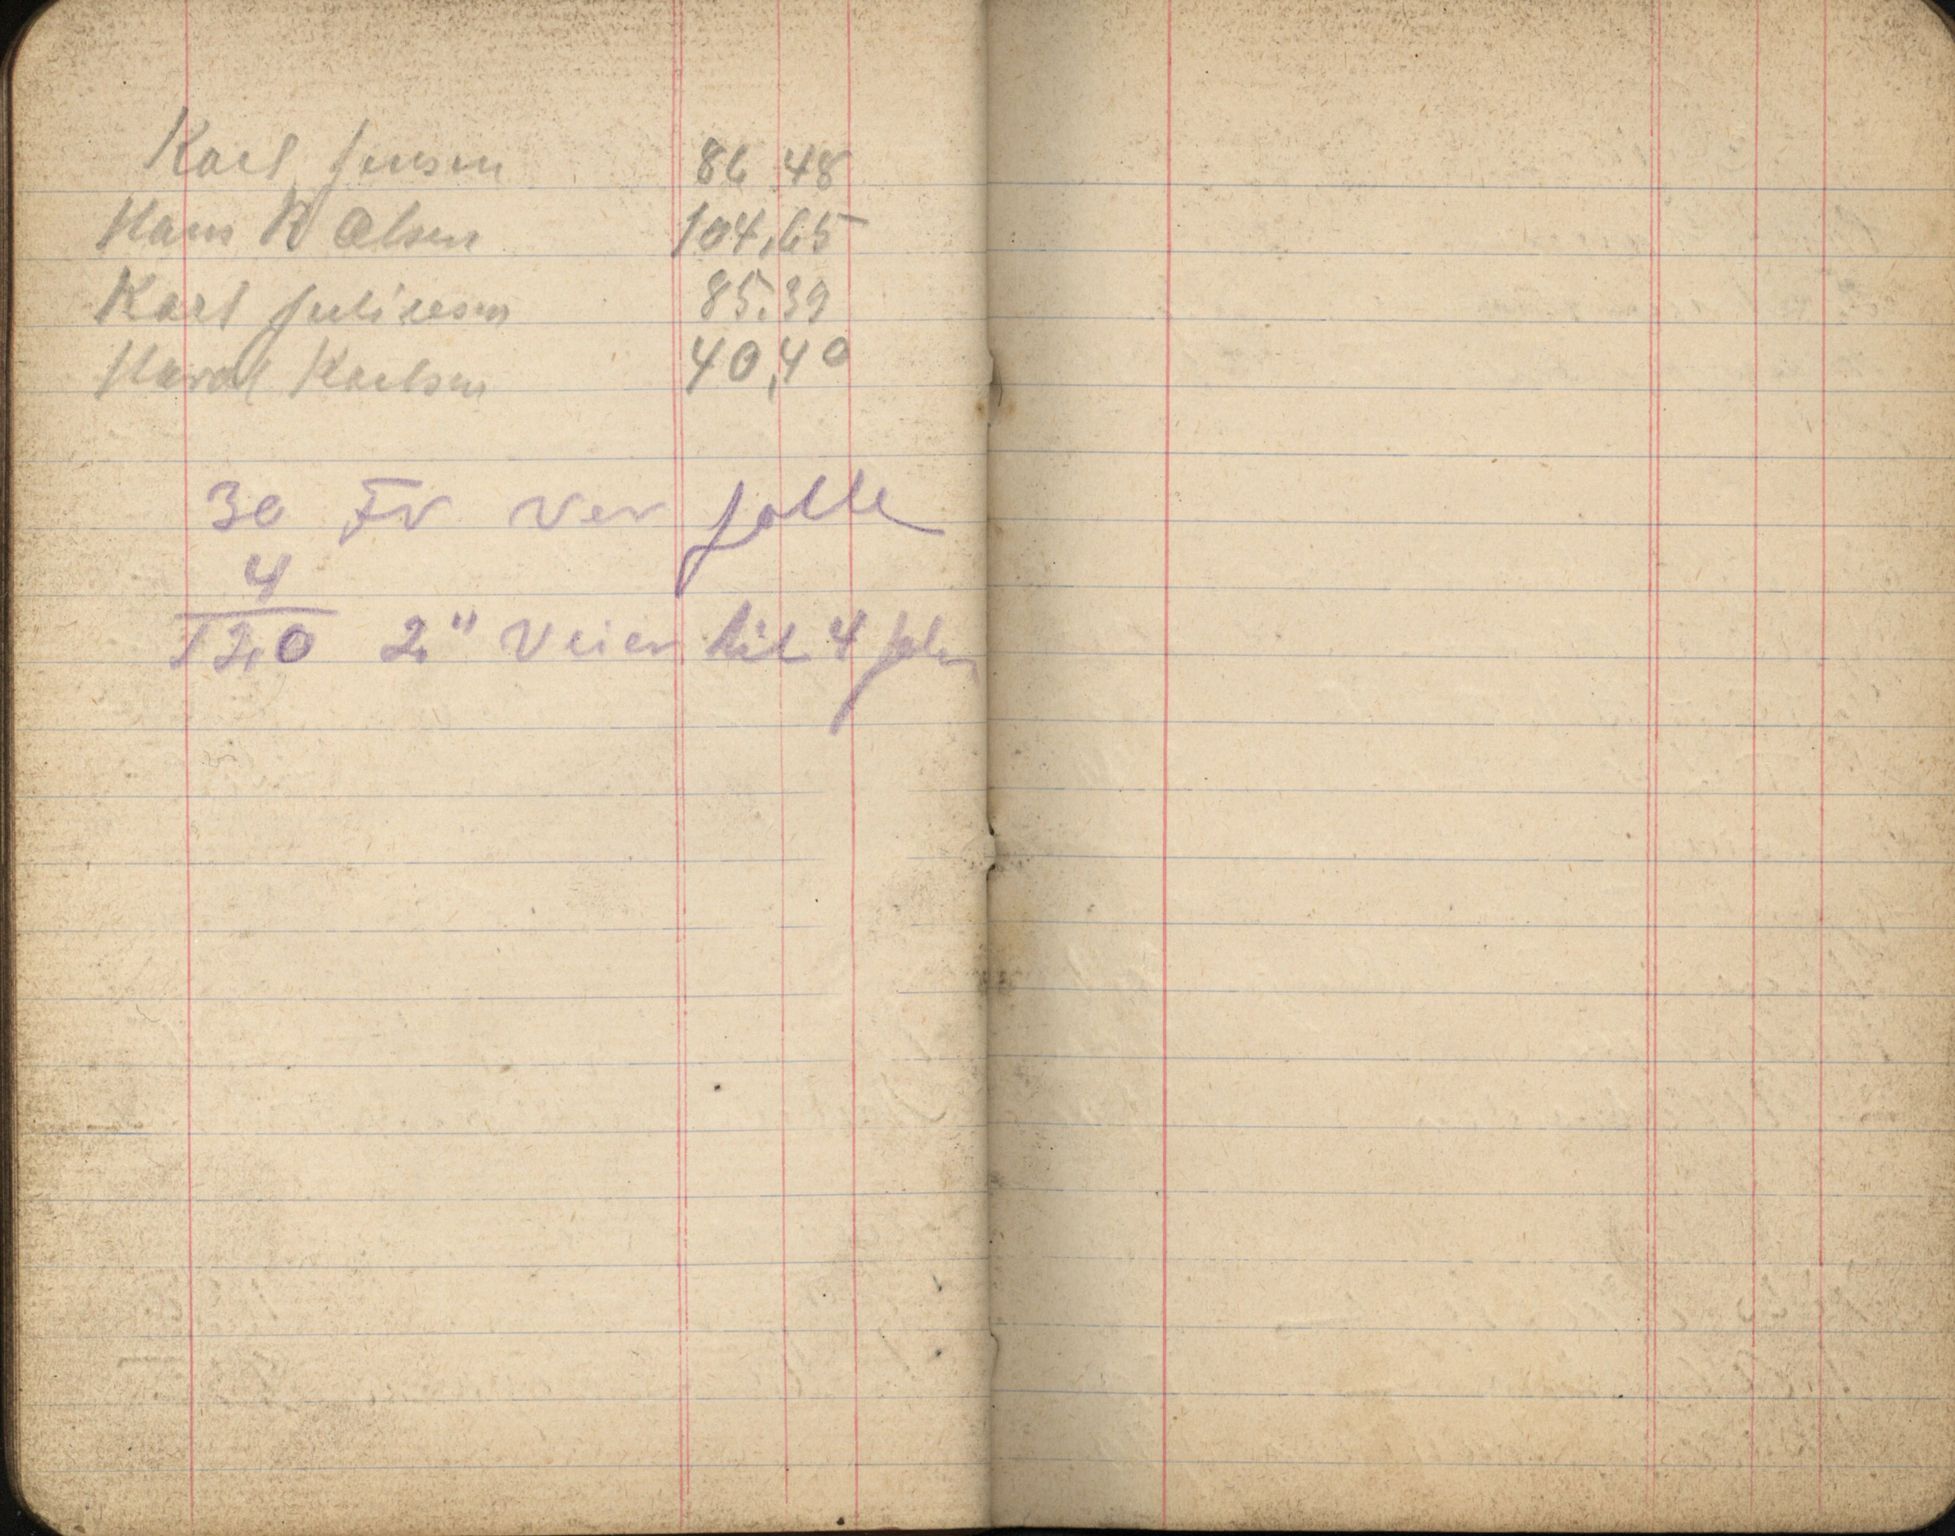 Karl Jensen 86 48
Hans R Olsen 104,65
Karl Juliussen 85.39
Haral Karlsen 40,40
30 Fv ver jolle
4
120 2" Veier til 4